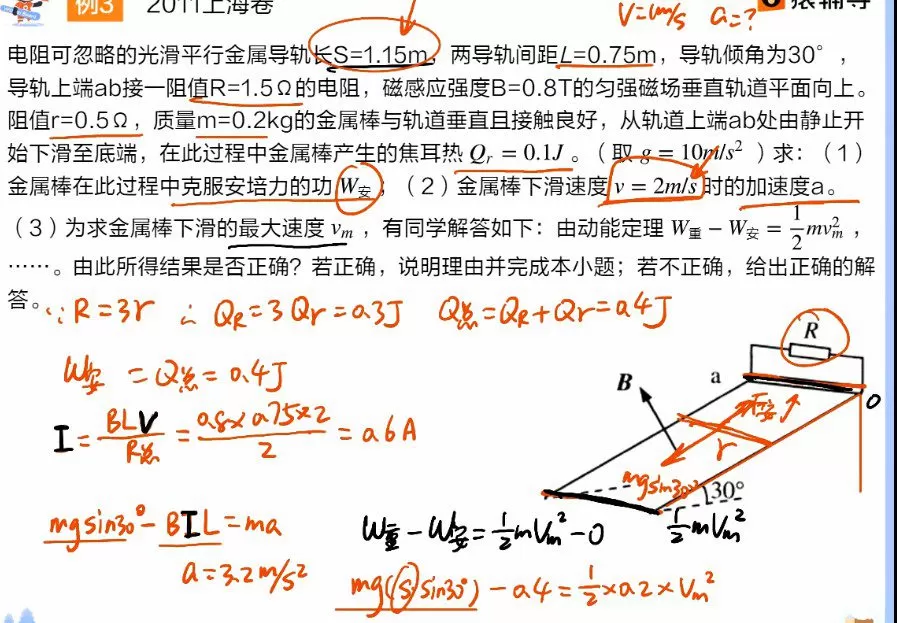 例3 2011上海卷
V=1m/s a=?
电阻可忽略的光滑平行金属导轨长S=1.15m，两导轨间距L=0.75m，导轨倾角为30°，
导轨上端ab接一阻值R=1.5Ω的电阻，磁感应强度B=0.8T的匀强磁场垂直轨道平面向上。
阻值r=0.5Ω，质量m=0.2kg的金属棒与轨道垂直且接触良好，从轨道上端ab处由静止开
始下滑至底端，在此过程中金属棒产生的焦耳热 Q_r = 0.1J 。（取 g = 10m/s² ）求：（1）
金属棒在此过程中克服安培力的功 W安；（2）金属棒下滑速度 v = 2m/s 时的加速度a。
（3）为求金属棒下滑的最大速度 v_m ，有同学解答如下：由动能定理 W重 − W安 = 1/2 mv_m²，
……。由此所得结果是否正确？若正确，说明理由并完成本小题；若不正确，给出正确的解
答。
∵ R=3r ∴ Q_R=3Q_r=0.3J Q总=Q_R+Q_r=0.4J
W安 =Q总=0.4J
I=BLV/R总=0.8×0.75×2/2=0.6A
mgsin30°-BIL=ma
a=3.2m/s²
W重-W安=1/2mV_m²-0
mg(S·sin30°)-0.4=1/2×0.2×V_m²
R
B
a
0
F安
r
mgsin30°
30°
1/2mV_m²